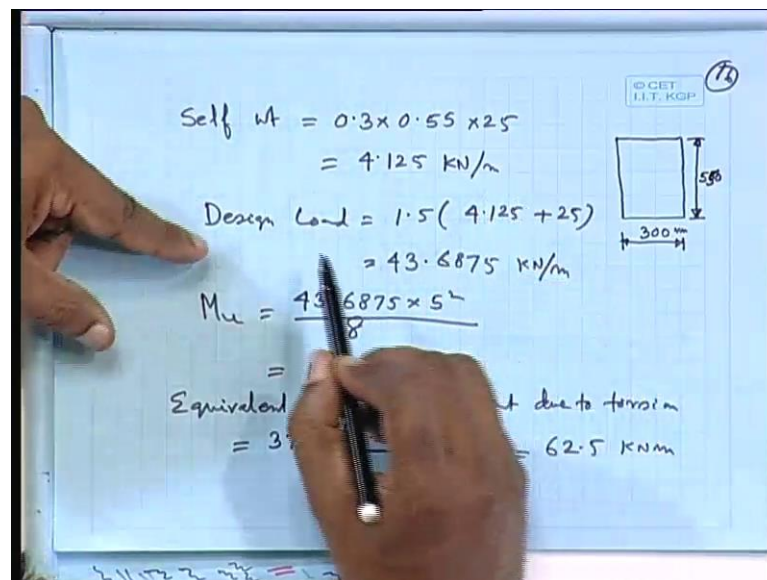 © CET
I.I.T. KGP
16
Self wt = 0.3 x 0.55 x 25
= 4.125 KN/m
550
300 mm
Design Load = 1.5 ( 4.125 + 25)
= 43.6875 KN/m
Mu = 43.6875 x 5²
8
=
Equivalent due to torsion
= 62.5 KNm